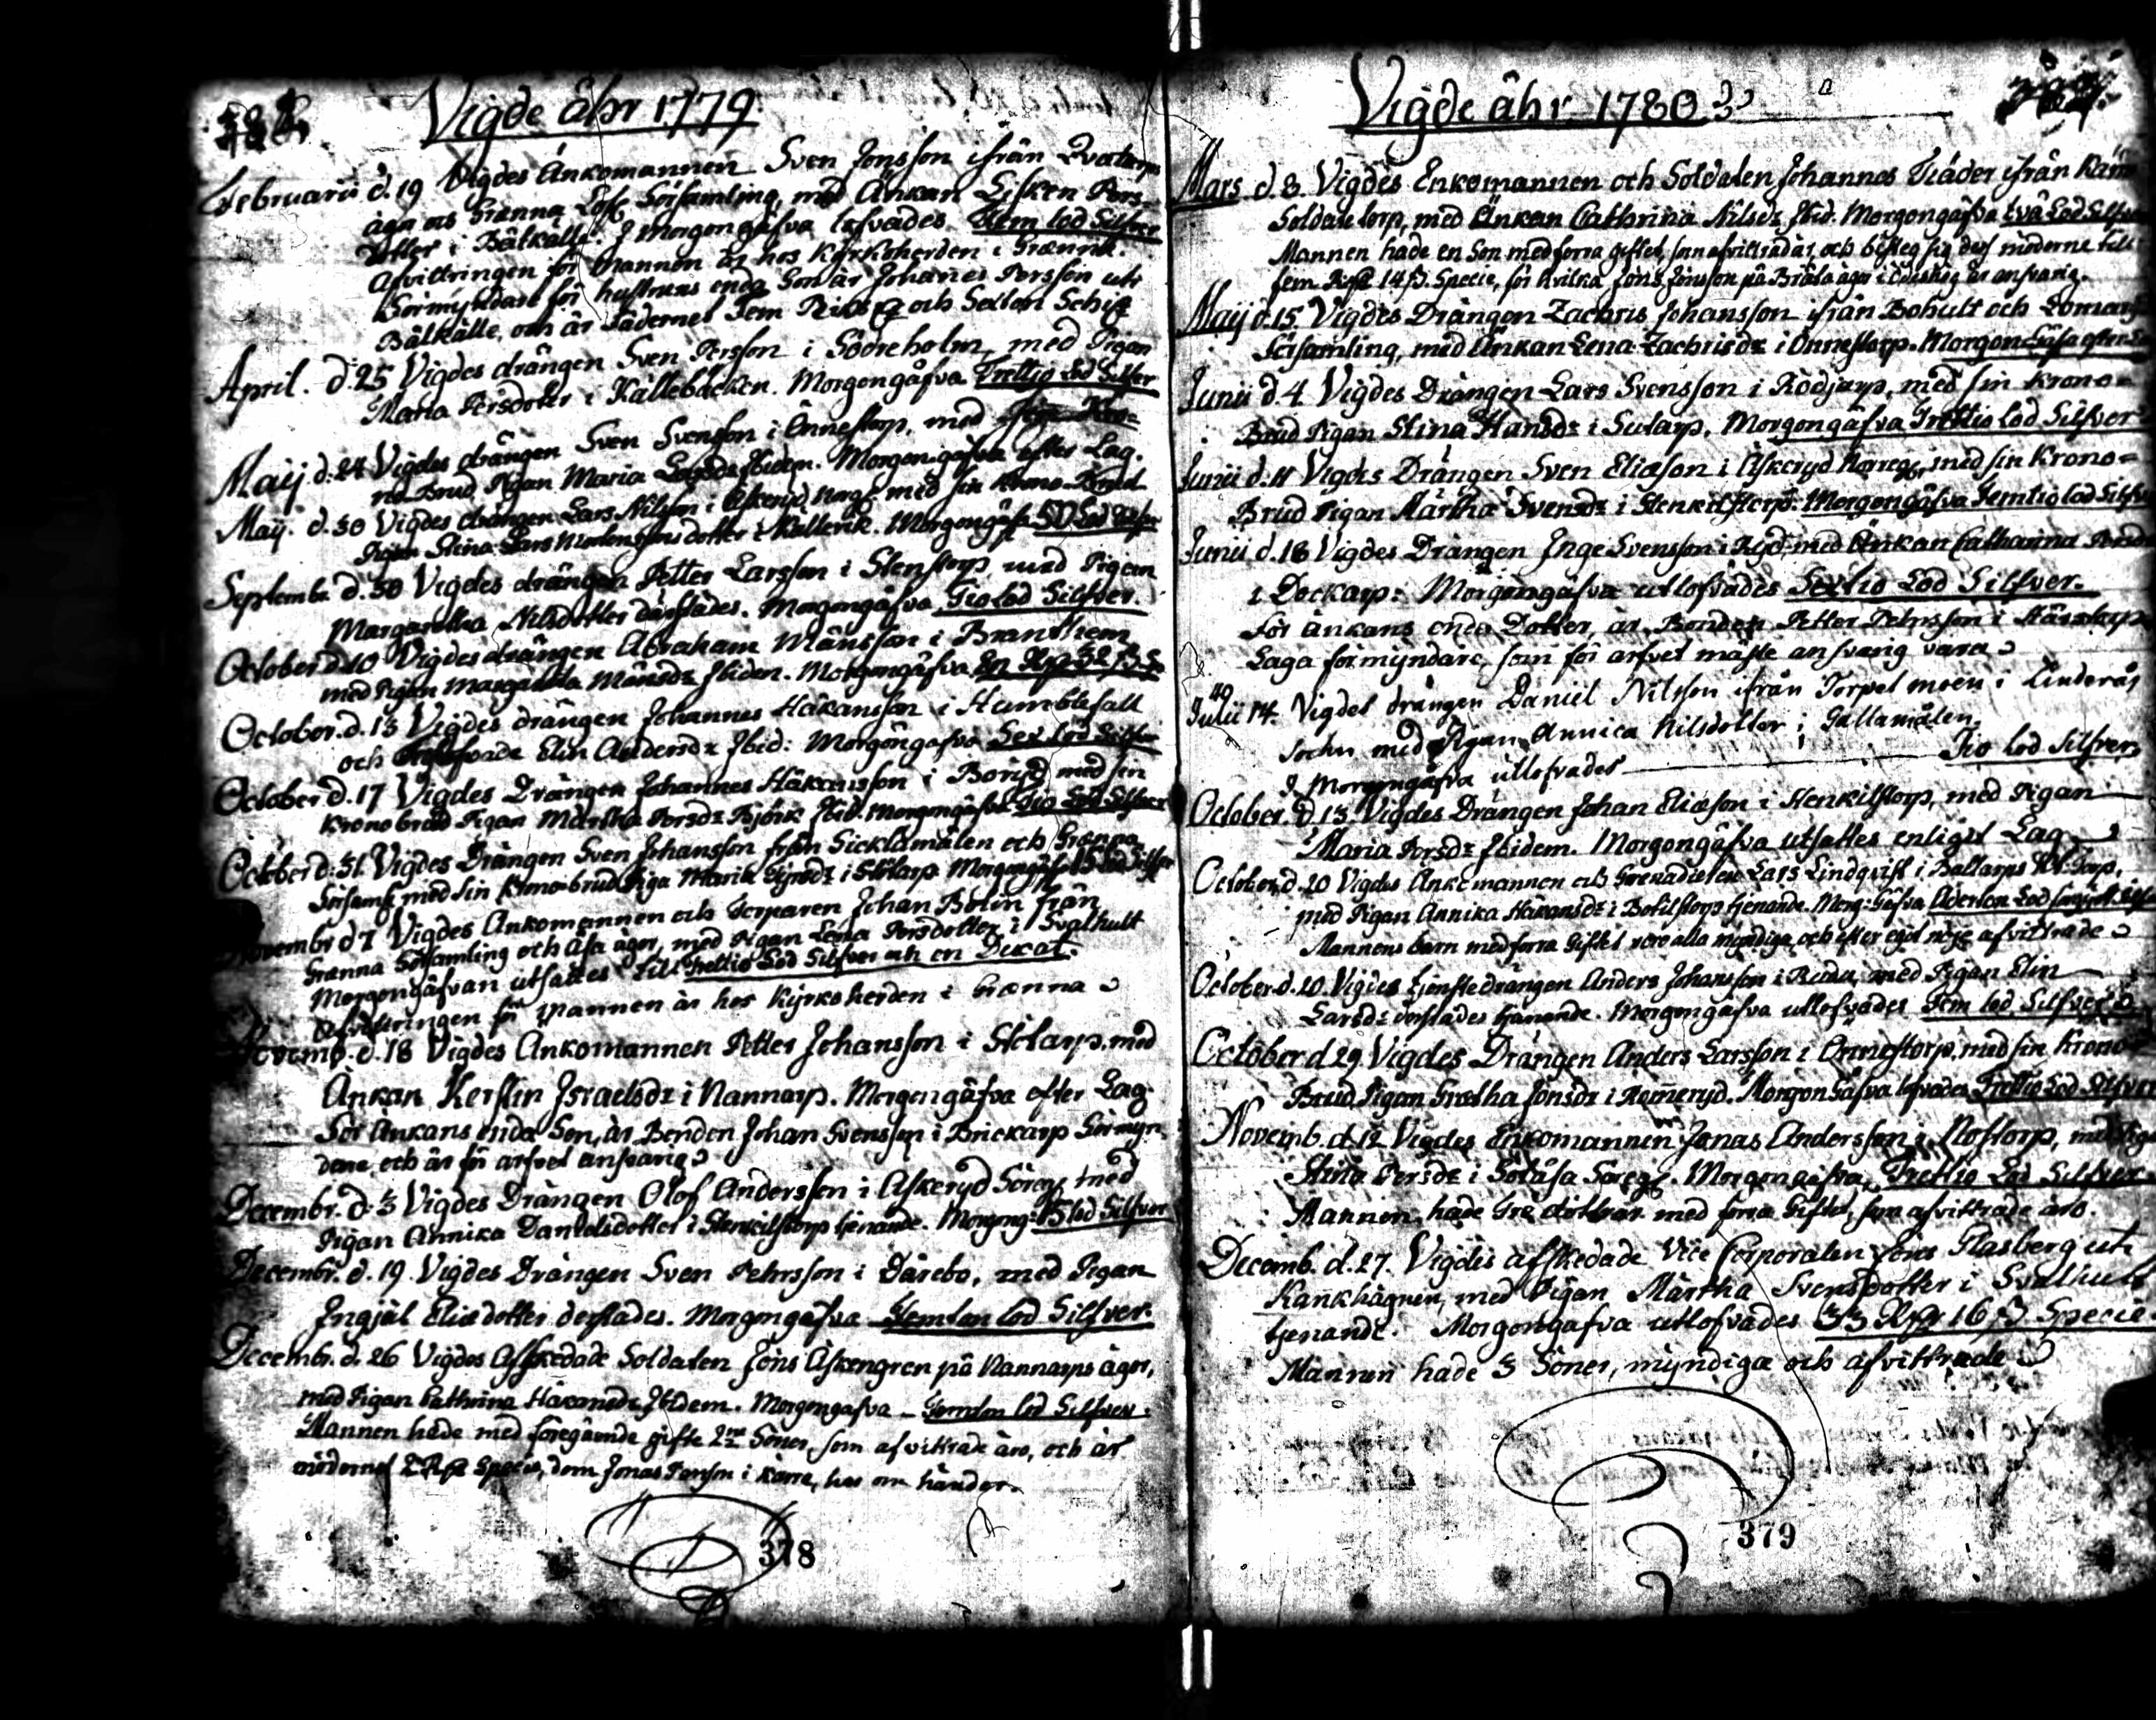 Vigde åhr 1779.
Februarii d. 19 Vigdes Änkomannen Sven Jonsson ifrån
äga och Grenna Församling, med Änkan Lisken Pers-
dotter i Bälkälla. I Morgongåfva lofvades Fem lod Silfver
Afvittringen för Mannen är hos Kyrkoherden i Grenna.
Förmyndare för hustruns enda Son är Johanes Persson uti
Bälkälle, och är Fädernet Fem Riks och Sexton Schill
April. d. 25 Vigdes drängen Sven Persson i Södreholm, med Pigan
Maria Persdotter i Källebäcken. Morgongåfva Trettio Lod Silfver
Maij d. 24 Vigdes drängen Sven Svensson i Önnestorp, med
Brud Pigan Maria Ibidem. Morgongåfva efter Lag.
Maij. d. 30 Vigdes drängen Lars Nilsson i Askeryd Norg. med sin Krono Brud
Pigan Stina dotter i Kallerik. Morgongåfva 50 Lod Silfver
Septembr. d. 30 Vigdes drängen Petter Larsson i Stenstorp, med Pigan
Margaretha Nilsdotter därstädes. Morgongåfva Tio lod Silfver.
October d. 10 Vigdes drängen Abraham Månsson i Branthem
med Pigan Margaretha Månsdr Ibidem. Morgongåfva En
October. d. 13 Vigdes drängen Johannes Håkansson i Humblefall
och Elin Andersdr Ibid: Morgongåfva Sex Lod Silfver
October d. 17 Vigdes Drängen Johannes Håkansson i Boryd med sin
Kronobrud Pigan Märtha Persdr Björk Ibid. Morgongåfva Tio Lod Silfver
October d. 31. Vigdes Drängen Sven Johansson från Sicklamålen och Grenna
Församl. med sin Kronobrud Piga Maria i Stötarp Morgongåf 15 lod silfver
Novembr d 7 Vigdes Änkomannen och Torparen Johan Bolin från
Grenna Församling och Åsa ägor, med Pigan Lena Persdotter i Svalhult
Morgongåfvan utsattes till Trettio Lod Silfver och en Ducat.
Afvittringen för Mannen är hos Kyrkoherden i Grenna
Novemb. d. 18 Vigdes Änkomannen Petter Johansson i Stötarp, med
Änkan Kerstin Israelsdr i Nannarp. Morgongåfva efter Lag
För Änkans enda Son, är Bonden Johan Svensson i Brickarp Förmyn-
dare, och är för arfvet ansvarig
Decembr. d. 3 Vigdes Drängen Olof Andersson i Askeryd Söreg. med
Pigan Annika Danielsdotter i Stenkilstorp tjenande. Morgong: 15 lod Silfver
Decembr. d. 19 Vigdes Drängen Sven Pehrsson i Därebo, med Pigan
Ingjäl Eliædotter derstädes. Morgongåfva Femton lod Silfver.
Decembr. d. 26 Vigdes Afskedade Soldaten Jöns Askengren på Nannarps ägor,
med Pigan Cathrina Håkansdr Ibidem. Morgongåfva Femton lod Silfver.
Mannen hade med föregående gifte 2ne Söner, som afvittrade äro, och är
mödernet 2 Specie, dem Jonas Jonson i Kärre, har om händer.
378
Vigde åhr 1780
Mars d. 8. Vigdes Enkomannen och Soldaten Johannes Träder ifrån
Soldate torp, med Änkan Cathrina Nilsdr Ibid. Morgongåfva två Lod Silfver
Mannen hade en Son med förra giftet, som afvittrad är, och besteg sig dess möderne till
fem 14 β. Specie, för hvilka Jöns Jönsson på Bråta ägor i Ödeshög är ansvarig.
Maij d. 15. Vigdes Drängen Zachris Johansson ifrån Bohult och
Församling, med Änkan Lena Zachrisdr i Önnestorp. Morgongåfva efter
Junii d. 4 Vigdes Drängen Lars Svensson i Rödjarp, med sin Krono-
Brud Pigan Stina Hansdr i Sutarp. Morgongåfva Trettio Lod Silfver
Junii d. 11 Vigdes Drängen Sven Eliæson i Askeryd Norreg. med sin Krono-
Brud Pigan Märtha Svensdr i Stenkilstorp. Morgongåfva Femtio lod Silfver
Junii d. 18 Vigdes Drängen Inge Svensson i Ryd, med Änkan Catharina
i Dockarp. Morgongåfva utlofvades Sextio Lod Silfver.
För änkans enda Dotter, är Bonden Petter Pehrsson i
Laga förmyndare, som för arfvet måste ansvarig vara
Julii 14. Vigdes drängen Daniel Nilsson ifrån Torpet moen i Linderås
Sochn med Pigan Annica Nilsdotter i Gallamålen.
I Morgongåfva utlofvades Tio lod Silfver
October. d. 13. Vigdes Drängen Johan Eliæson i Henkilstorp, med Pigan
Maria Persdr Ibidem. Morgongåfva utsattes enligit Lag
October. d. 20 Vigdes Änkemannen och Grenadieren Lars Lindqvist i Ballarps Torp,
med Pigan Annika Håkansdr i Botilstorp tjenande. Morg: Gåfva Aderton Lod
Mannens barn med förra Giftet voro alla myndiga, och efter egit nöje afvittrade
October d. 20. Vigdes tjenstedrängen Anders Johansson i Ruda, med Pigan Elin
Larsdr derstädes tjenande. Morgongåfva utlofvades Fem lod Silfver
October d 29. Vigdes Drängen Anders Larsson i Önnestorp, med sin Krono-
Brud, Pigan Gretha Jönsdr i Romeryd. Morgongåfva lofvades Trettio Lod Silfver
Novemb. d. 12 Vigdes Enkomannen Jonas Andersson i Nostorp, med
Stina Persdr i Solåsa Söreg. Morgongåfva, Trettio Lod Silfver
Mannen hade Tre döttrar med förra Giftet, som afvittrade äro.
Decemb. d. 27. Vigdes afskedade Vice Corporalen Jöns Flasberg uti
Kankhägnen, med Pigan Märtha Svensdotter i Svalhult
tjenande. Morgongåfva utlofvades 33 16 β Specie
Mannen hade 3 Söner, myndiga och afvittrade
379